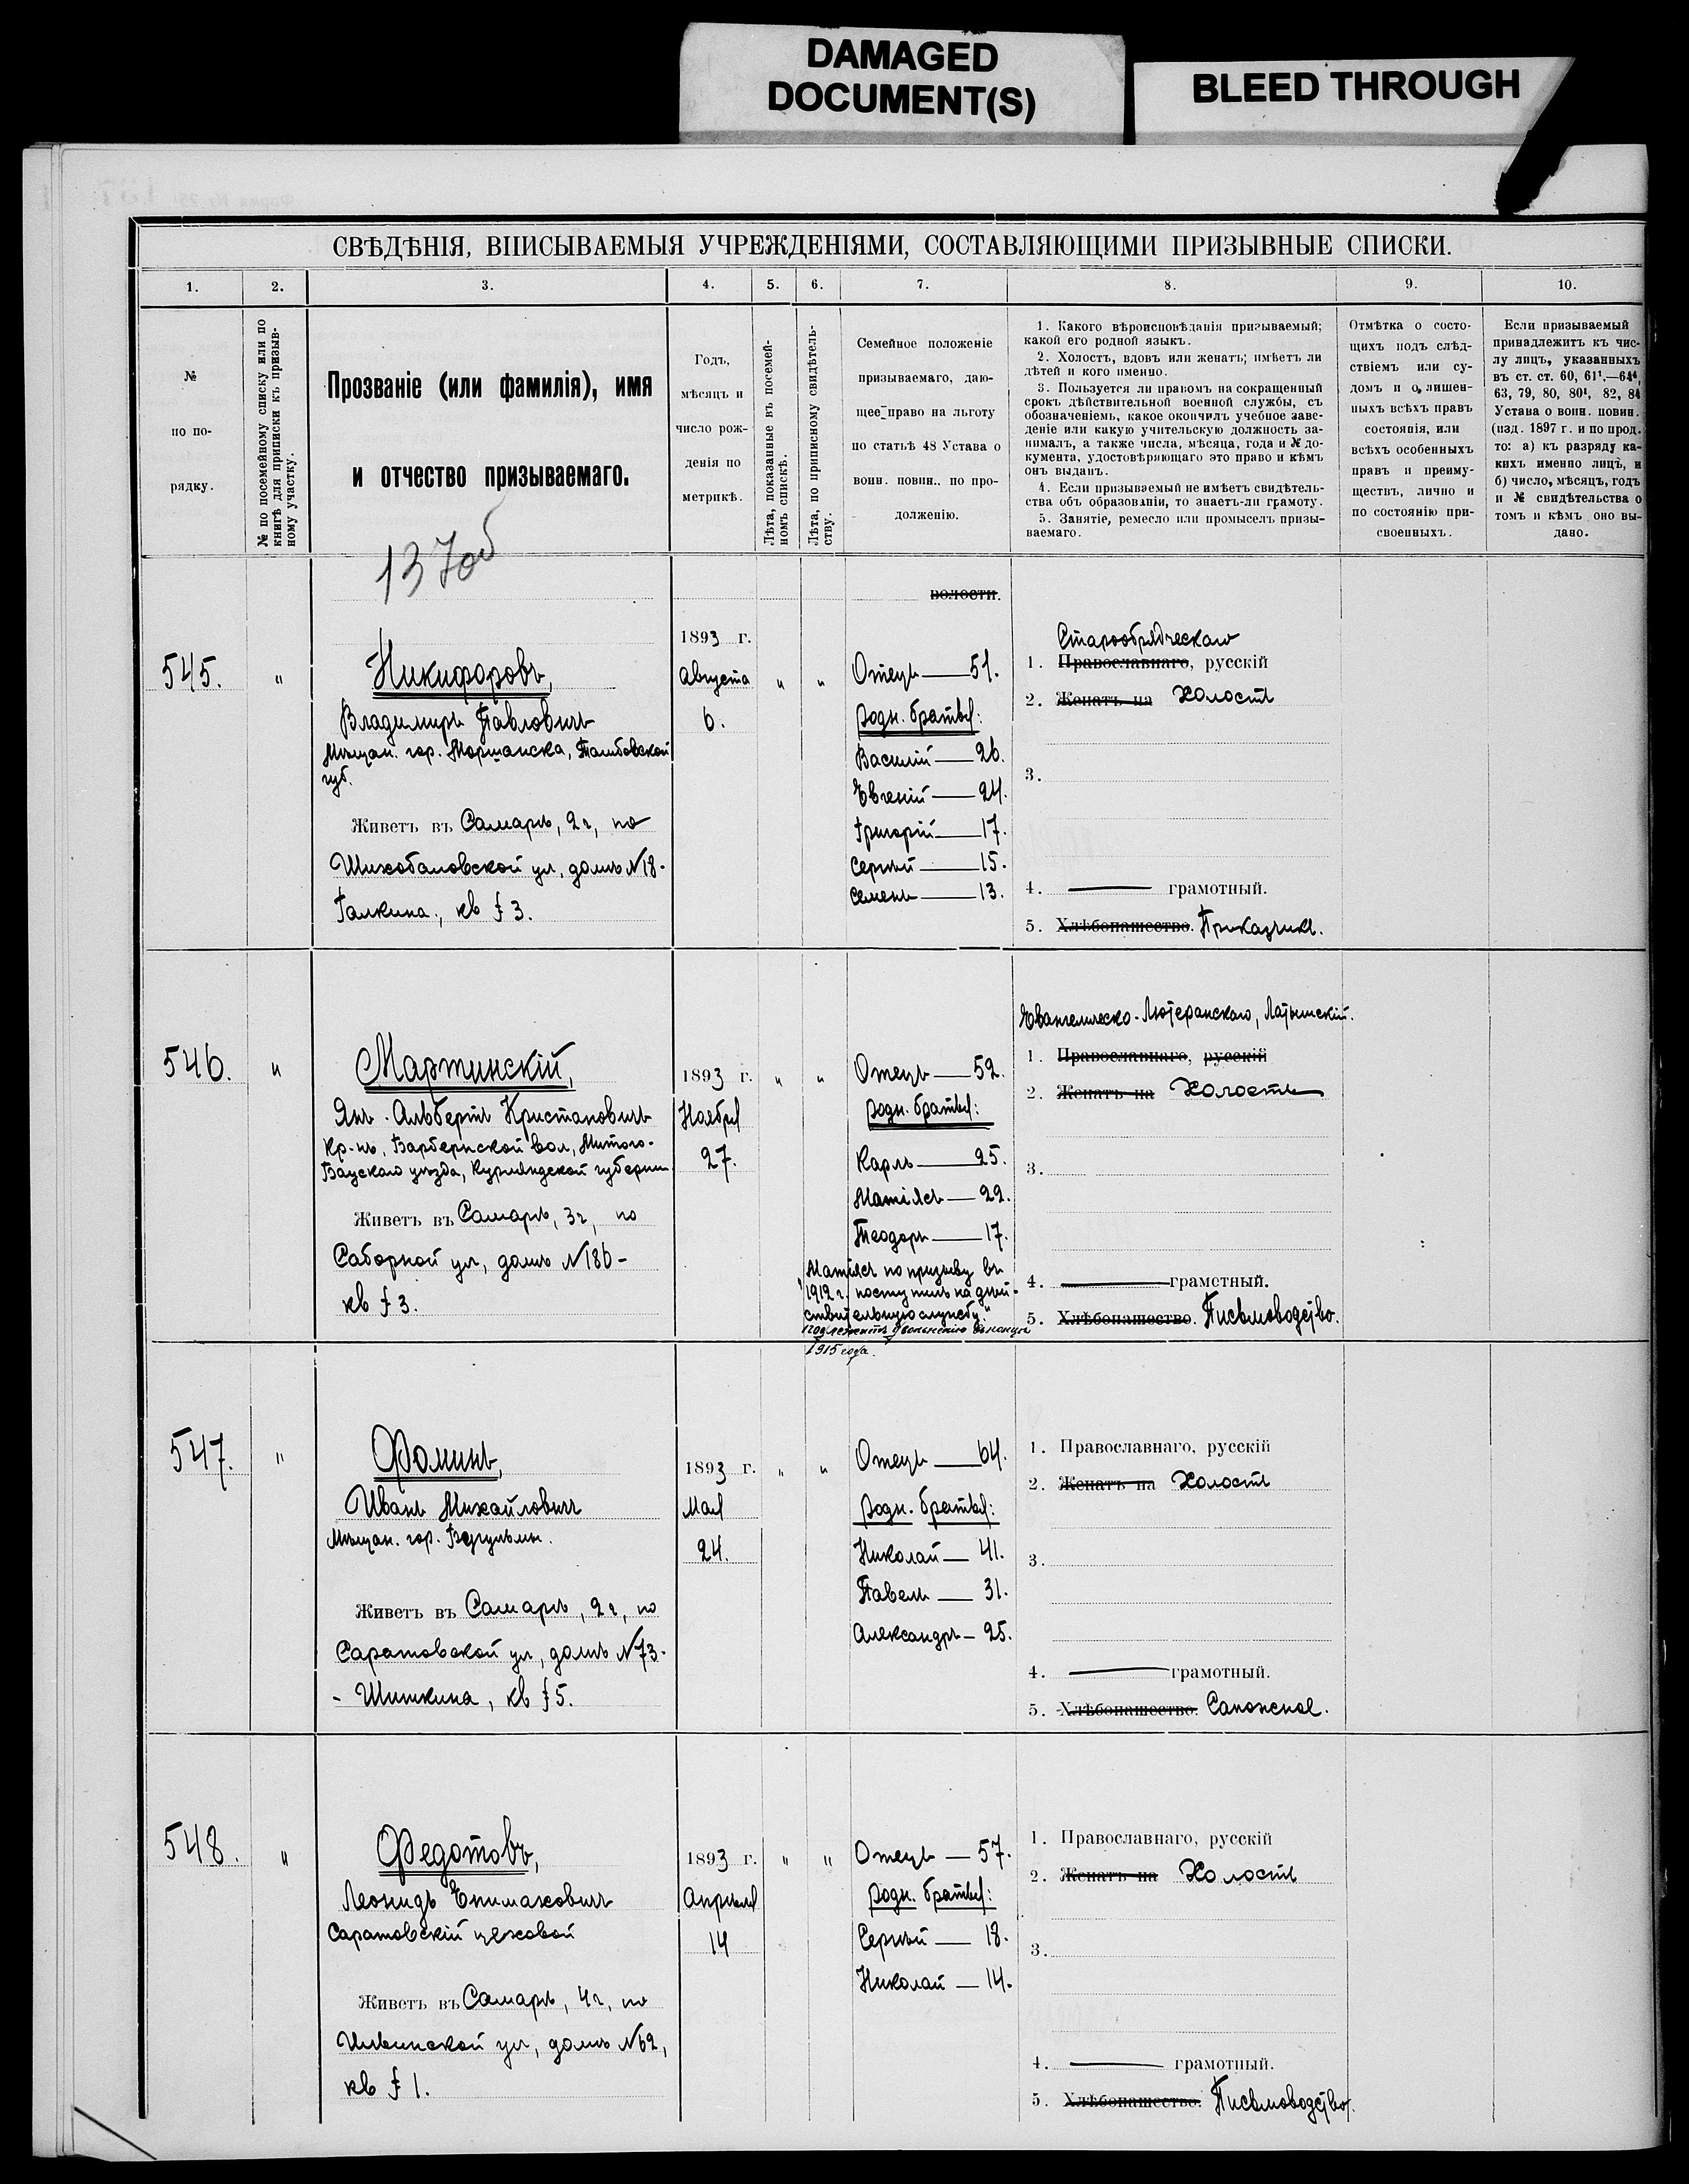 DAMAGED
DOCUMENT(S)
BLEED THROUGH
СВѢДѢНІЯ, ВПИСЫВАЕМЫЯ УЧРЕЖДЕНІЯМИ, СОСТАВЛЯЮЩИМИ ПРИЗЫВНЫЕ СПИСКИ.
1. 2. 3. 4. 5. 6. 7. 8. 9. 10.
№
по по-
рядку.
№ по посемейному списку или по
книгѣ для приписки къ призыв-
ному участку.
Прозваніе (или фамилія), имя
и отчество призываемаго.
Годъ,
мѣсяцъ и
число рож-
денія по
метрикѣ.
Лѣта, показанные въ посемей-
номъ спискѣ.
Лѣта, по приписному свидѣтель-
ству.
Семейное положеніе
призываемаго, даю-
щее право на льготу
по статьѣ 48 Устава о
воин. повин., по про-
долженію.
1. Какого вѣроисповѣданія призываемый;
какой его родной языкъ.
2. Холостъ, вдовъ или женатъ; имѣетъ ли
дѣтей и кого именно.
3. Пользуется ли правомъ на сокращенный
срокъ дѣйствительной военной службы, съ
обозначеніемъ, какое окончилъ учебное заве-
деніе или какую учительскую должность за-
нималъ, а также числа, мѣсяца, года и № до-
кумента, удостовѣряющаго это право и кѣмъ
онъ выданъ.
4. Если призываемый не имѣетъ свидѣтель-
ства объ образованіи, то знаетъ-ли грамоту.
5. Занятіе, ремесло или промыселъ призы-
ваемаго.
Отмѣтка о состо-
щихъ подъ слѣд-
ствіемъ или су-
домъ и о лишен-
ныхъ всѣхъ правъ
состоянія, или
всѣхъ особенныхъ
правъ и преиму-
ществъ, лично и
по состоянію при-
своенныхъ.
Если призываемый
принадлежитъ къ чис-
лу лицъ, указанныхъ
въ ст. ст. 60, 61¹.—64⁴,
63, 79, 80, 80¹, 82, 84
Устава о воин. повин.
(изд. 1897 г. и по прод.
то: а) къ разряду ка-
кихъ именно лицъ, и
б) число, мѣсяцъ, годъ
и № свидѣтельства о
томъ и кѣмъ оно вы-
дано.
137об
волости.
545. "
Никифоровъ,
Владимиръ Павловичъ
Мѣщан. гор. Моршанска, Тамбовской
губ.
Живетъ въ Самарѣ, 2ч, по
Шихобаловской ул, домъ №18-
Галкина, кв № 3.
1893 г.
Августа
6.
" "
Отецъ — 51.
родн. братья:
Василій — 26.
Евгеній — 24.
Григорій — 17.
Сергѣй — 15.
Семенъ — 13.
Старообрядческаго
1. Православнаго, русскій
2. Женатъ на Холостъ
3.
4. — грамотный.
5. Хлѣбопашество. Приказчикъ.
546. "
Мартинскій,
Янъ-Альбертъ Кристановичъ
Кр-нъ, Барбернской вол, Митого-
Баускаго уѣзда, Курляндской губерніи
Живетъ въ Самарѣ, 3ч, по
Саборной ул, домъ №186-
кв № 3.
1893 г.
Ноября
27.
" "
Отецъ — 52.
родн. братья:
Карлъ — 25.
Матіясъ — 22.
Теодоръ — 17.
Матіясъ по призыву въ
1912 г. поступилъ на дѣй-
ствительную службу"
подлежитъ увольненію въ концѣ
1915 года.
Евангелическо-Лютеранскаго, Латышскій.
1. Православнаго, русскій
2. Женатъ на Холостъ
3.
4. — грамотный.
5. Хлѣбопашество. Письмоводство.
547. "
Фоминъ,
Иванъ Михайловичъ
Мѣщан. гор. Бугульмы.
Живетъ въ Самарѣ, 2ч, по
Саратовской ул, домъ №73-
- Шишкина, кв № 5.
1893 г.
Мая
24.
" "
Отецъ — 64.
родн. братья:
Николай — 41.
Павелъ — 31.
Александръ — 25.
1. Православнаго, русскій
2. Женатъ на Холостъ
3.
4. — грамотный.
5. Хлѣбопашество. Сапожное.
548. "
Федотовъ,
Леонидъ Епимаховичъ
Саратовскій цеховой
Живетъ въ Самарѣ, 4ч, по
Ильинской ул, домъ №62,
кв № 1.
1893 г.
Апрѣля
14
" "
Отецъ — 57.
родн. братья:
Сергѣй — 18.
Николай — 14.
1. Православнаго, русскій
2. Женатъ на Холостъ
3.
4. — грамотный.
5. Хлѣбопашество. Письмоводство.